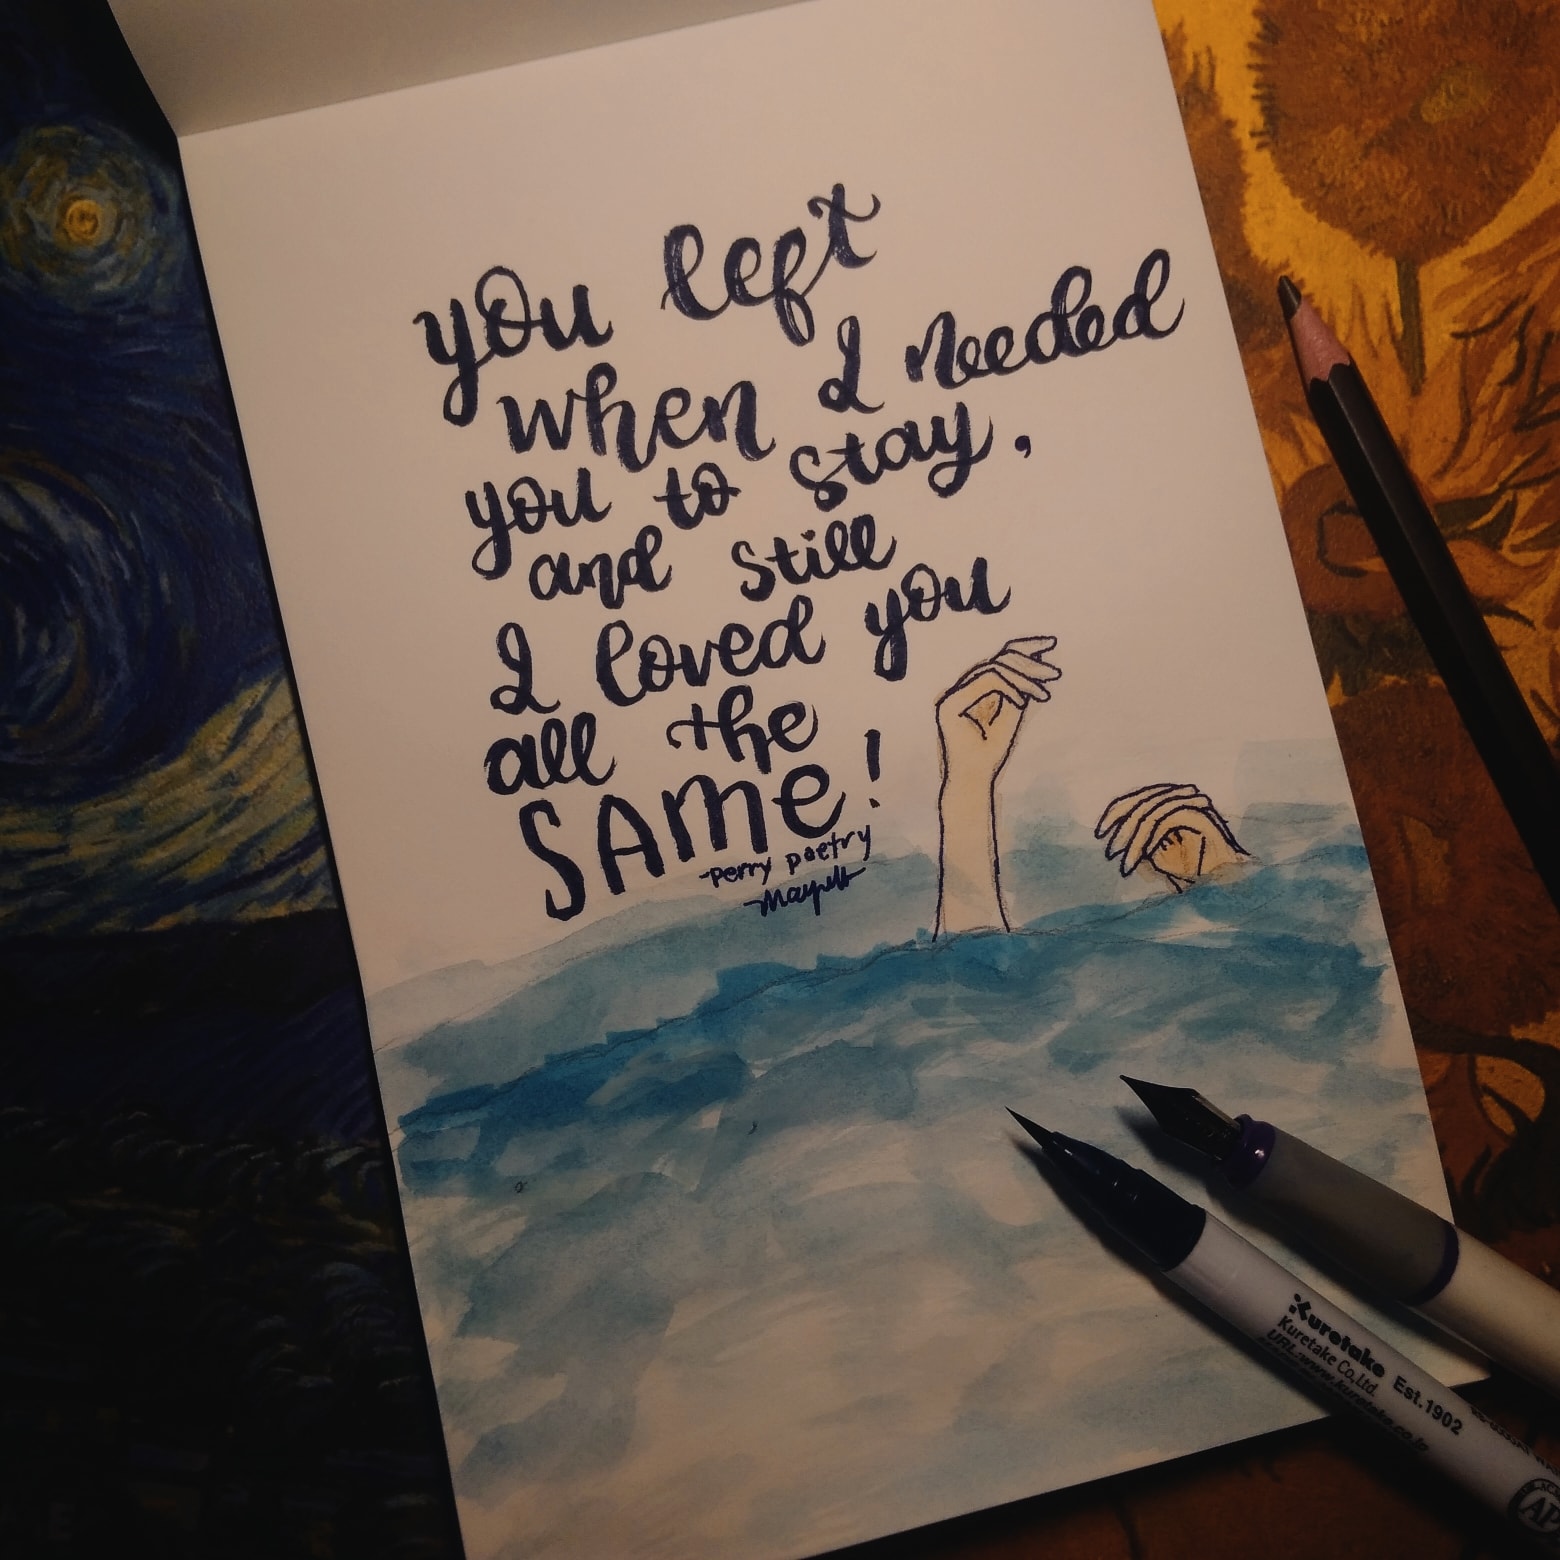 you left
when I needed
you to stay,
and still
I loved you
all the
SAME!
-perry poetry
Kuretake Est.1902
Kuretake Co.,Ltd.
URL:www.kuretake.co.jp
AP